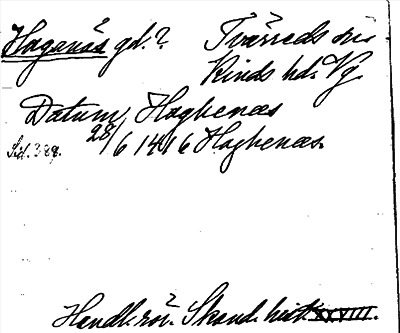 Hagenäs gd.? Tvärreds sn
Kinds hd. Vg
Datum Haghenæs
Sid. 388. 28/6 1416 Haghenæs
Handl. rör. Skand. hist. XXVIII.